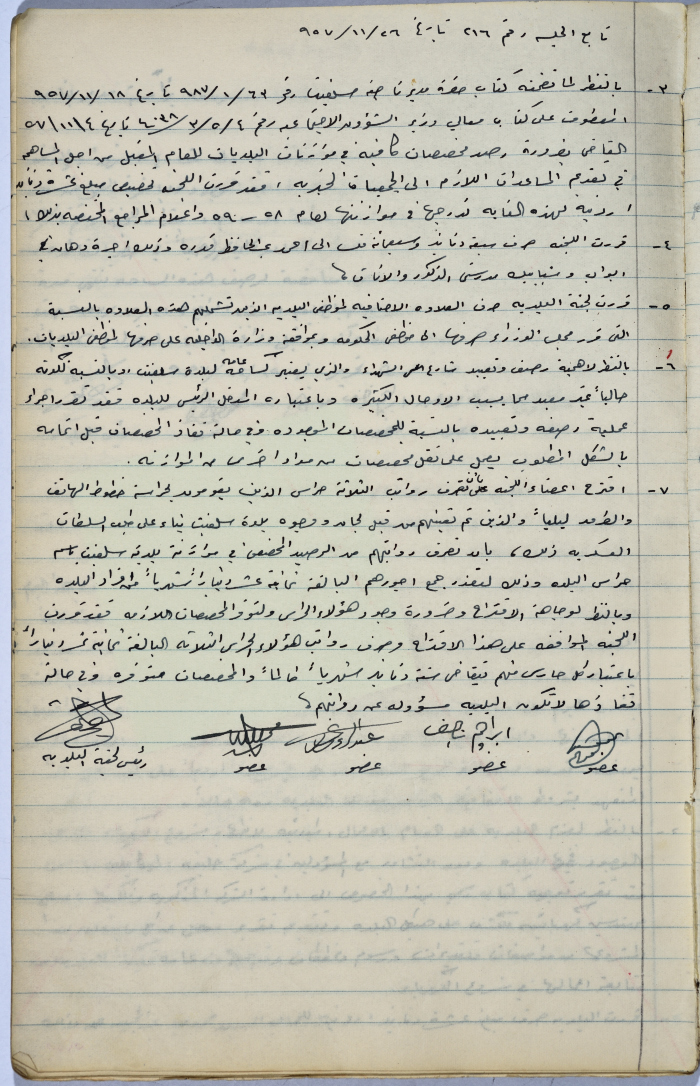 تابع الجلسه رقم ٢١٦ تاريخ ٢٦/١١/٩٥٧
٣- بالنظر لما تضمنه كتاب حضرة مدير ناحية سلفيت رقم ٦٣/١/٩٨٧ تاريخ ١٨/١١/٩٥٧
المعطوف على كتاب معالي وزير الشؤون الاجتماعيه رقم ٤/٥/٣/ تاريخ ٤/١١/٥٧
القاضي بضرورة رصد مخصصات كافية في موازنات البلديات للعام المقبل من اجل المساهمه
في تقديم المساعدات اللازمه الى الجمعيات الخيريه ، فقد قررت اللجنه تخصيص مبلغ عشرة دنانير
اردنية لهذه الغايه تدرجها في موازنتها لعام ٥٨ - ٥٩ واعلام المراجع المختصه بذلك .
٤- قررت اللجنه صرف سبعة دنانير وسبعمائة فلس الى احمد عبد الحافظ قدره وذلك اجرة دهان
ابواب وشبابيك مدرستي الذكور والاناث .
٥- قررت لجنة البلديه صرف العلاوه الاضافيه لموظفي البلديه الذين تشملهم هذه العلاوه بالنسبة
التي قرر مجلس الوزراء صرفها الى موظفي الحكومه وبموافقة وزارة الداخليه على صرفها لموظفي البلديات .
٦- بالنظر لاهمية رصف وتعبيد شارع الشهداء والذي يعتبر كساحة عامه لبلدة سلفيت ، وبالنسبه لكونه
حالياً غير معبد مما يسبب الاوحال الكثيره وباعتباره المدخل الرئيسي للبلده فقد تقرر اجراء
عملية رصفه وتعبيده بالنسبة للمخصصات الموجوده وفي حالة نفاذ المخصصات قبل اتمامه
بالشكل المطلوب يعمل على نقل مخصصات من مواد اخرى من الموازنه .
٧- اقترح اعضاء اللجنه بان تصرف رواتب الثلاثة حراس الذين يقومون بحراسة خطوط الهاتف
والعمد ليلياً والذين تم تعيينهم من قبل لجان وجوه بلدة سلفيت بناء على طلب السلطات
العسكريه ذلك ، بان تصرف رواتبهم من الرصيد المخصص في موازنة بلدية سلفيت باسم
حراس البلده وذلك لتعذر جمع اجورهم البالغة ثمانية عشر ديناراً شهرياً من افراد البلده
وبالنظر لوجاهة الاقتراح وضرورة وجود هؤلاء الحراس ولتوفر المخصصات اللازمه فقد قررت
اللجنه الموافقه على هذا الاقتراح وصرف رواتب هؤلاء الحراس الثلاثه البالغة ثمانية عشر ديناراً
باعتبار كل حارس منهم يتقاضى ستة دنانير شهرياً طالما والمخصصات متوفره وفي حالة
نفاذها لا تكون البلديه مسؤوله عن رواتبهم .
ابراهيم
عضو عضو عضو عضو رئيس لجنة البلديه